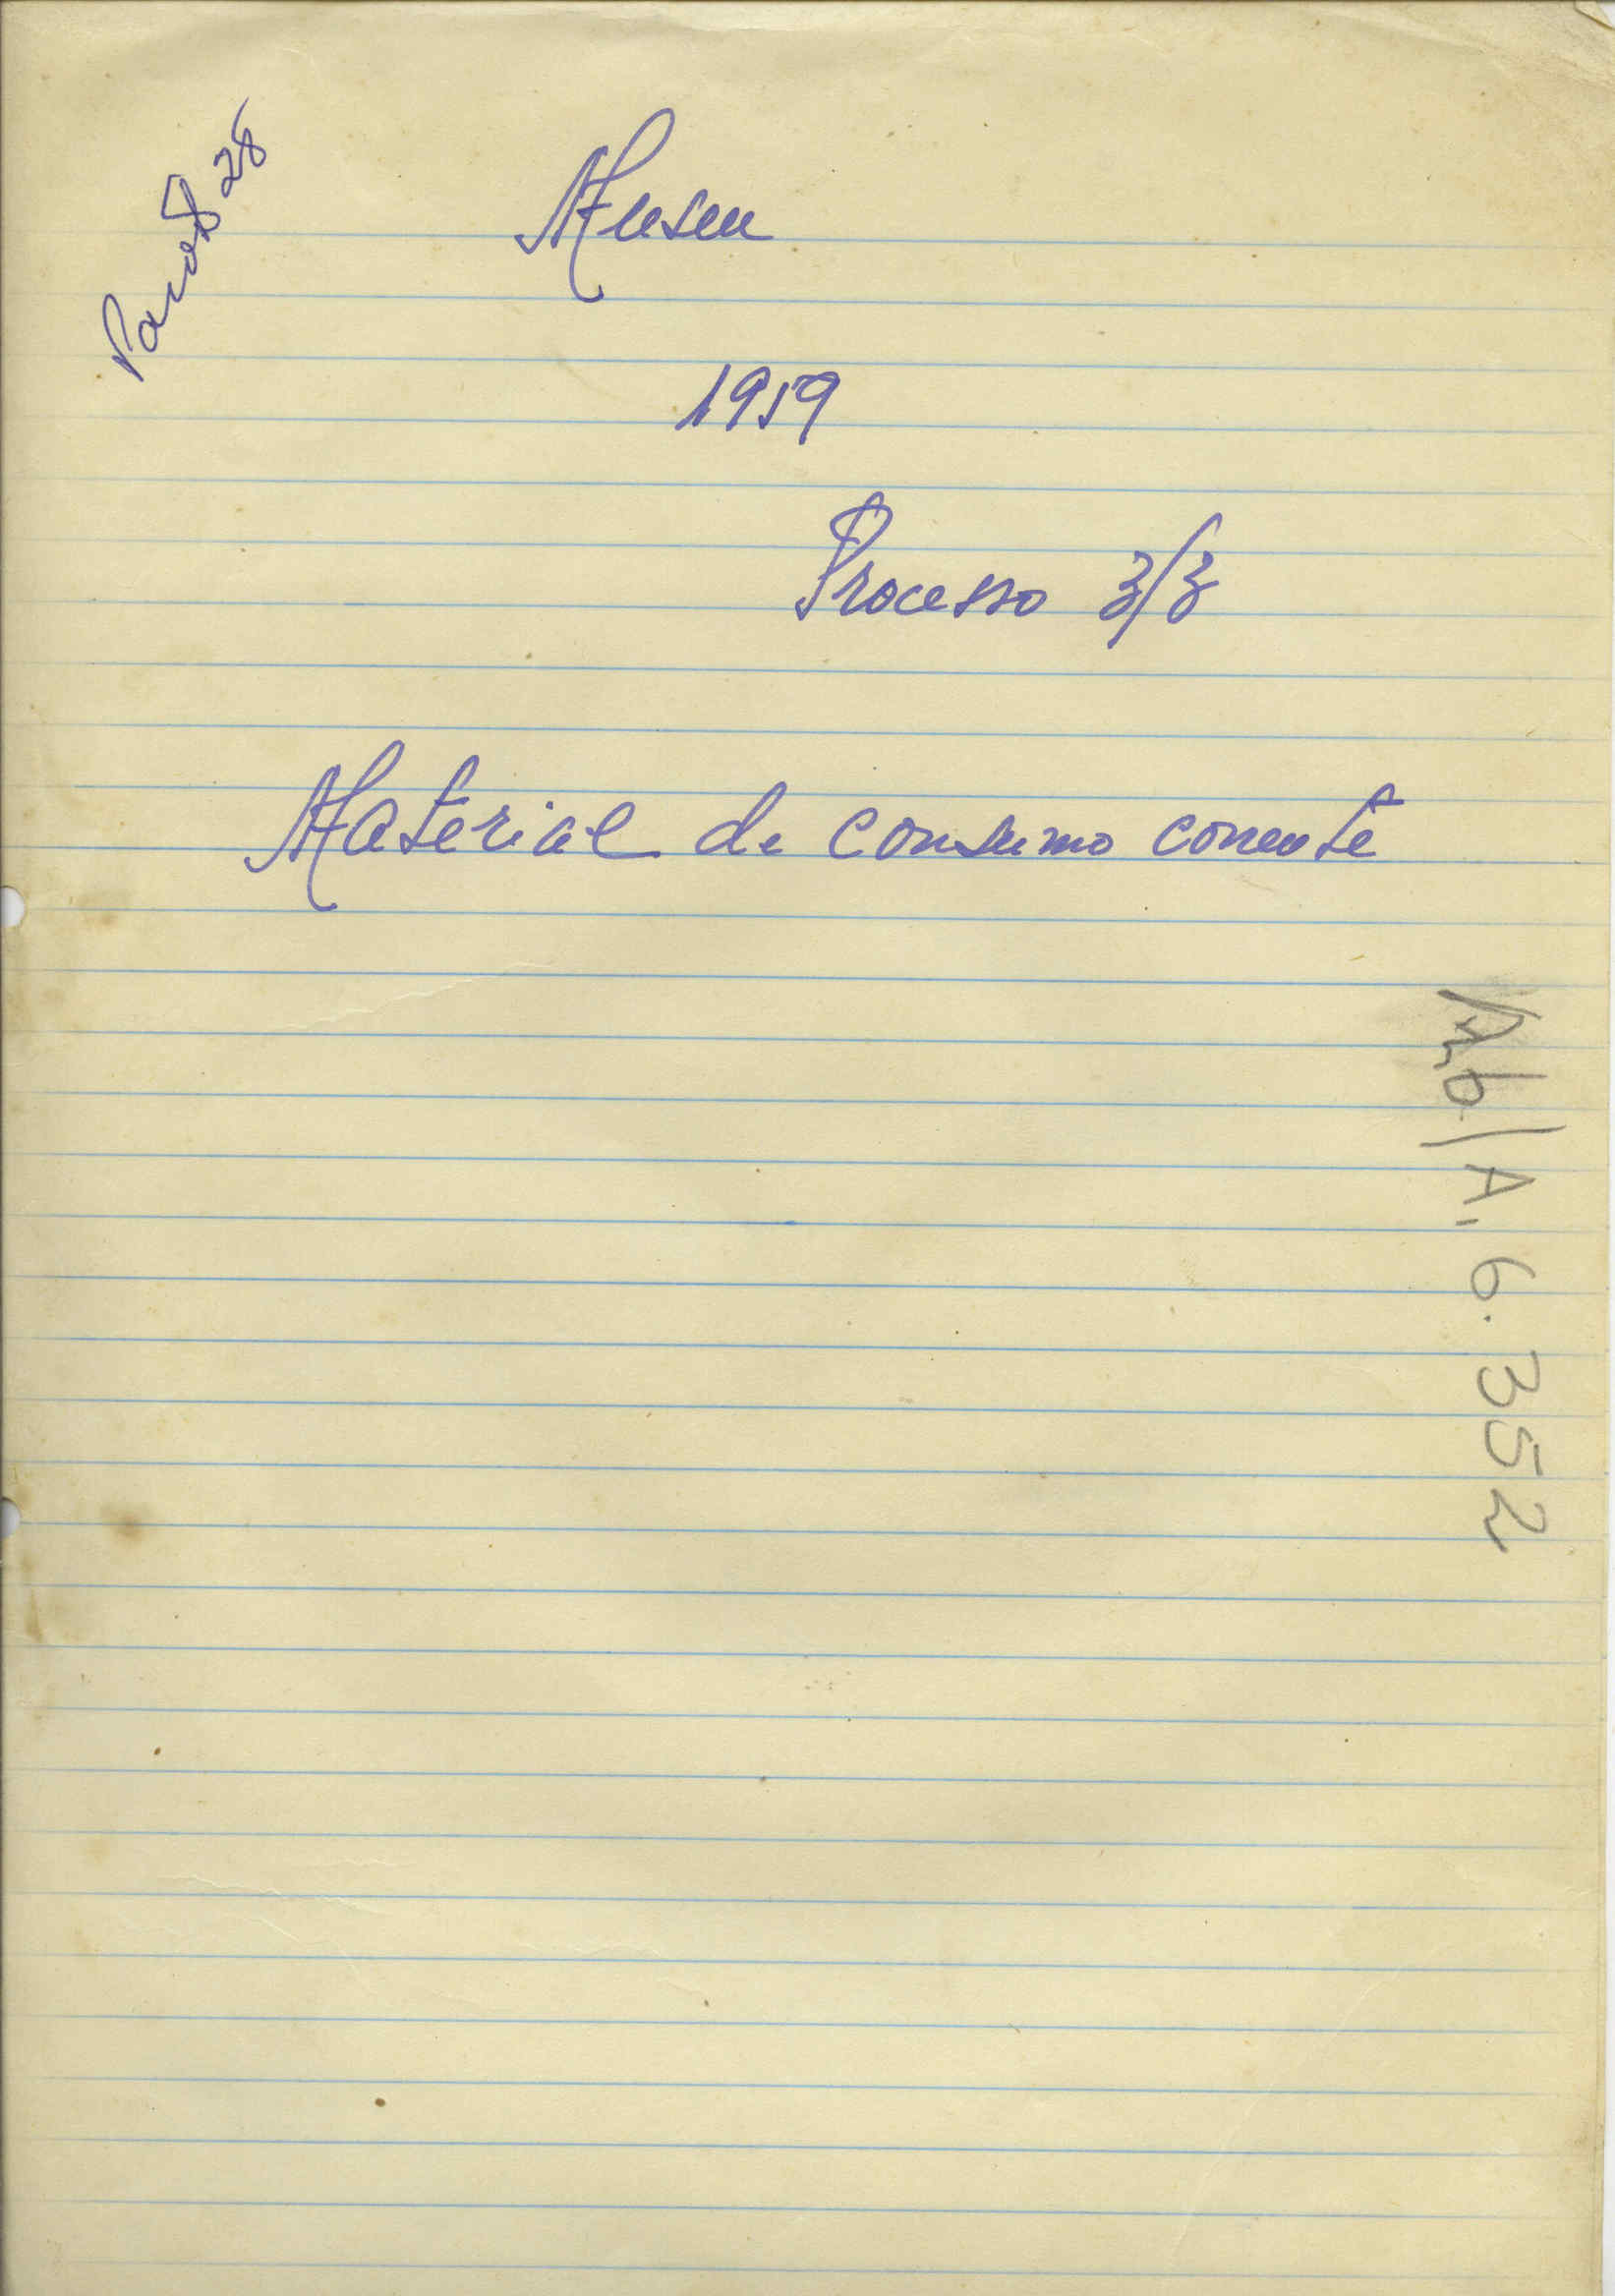 28
Museu
1959
Processo 3/3
Material de consumo corrente
A. 6. 352